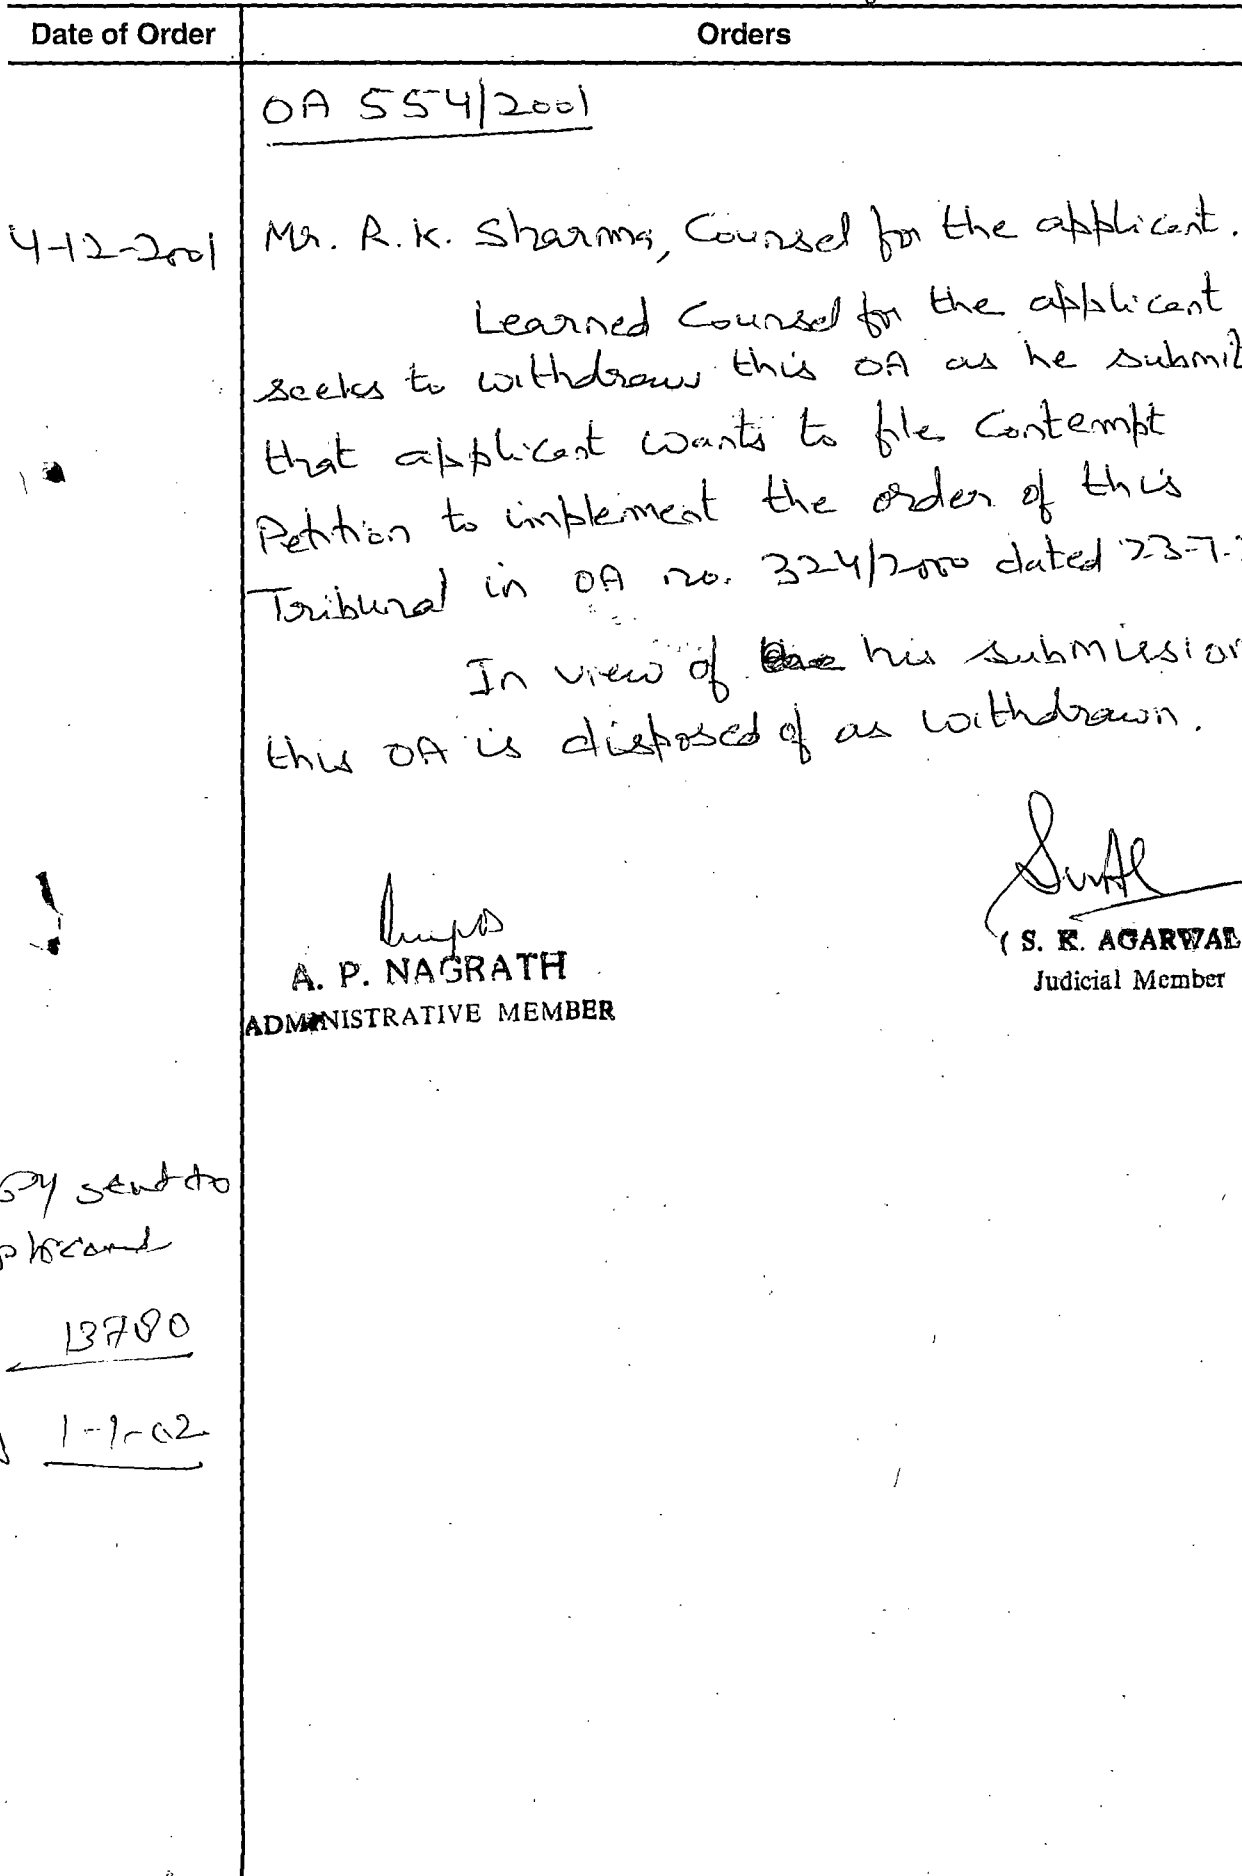 Date of Order
Orders
OA 554/2001
4-12-2001
Mr. R.K. Sharma, Counsel for the applicant.
Learned Counsel for the applicant
seeks to withdraw this OA as he submit
that applicant wants to file Contempt
Petition to implement the order of this
Tribunal in OA no. 324/2000 dated 23-7-
In view of his submission
this OA is disposed of as withdrawn.
A. P. NAGRATH
ADMINISTRATIVE MEMBER
( S. K. AGARWAL
Judicial Member
opy sent to
plicant
13780
1-1-02